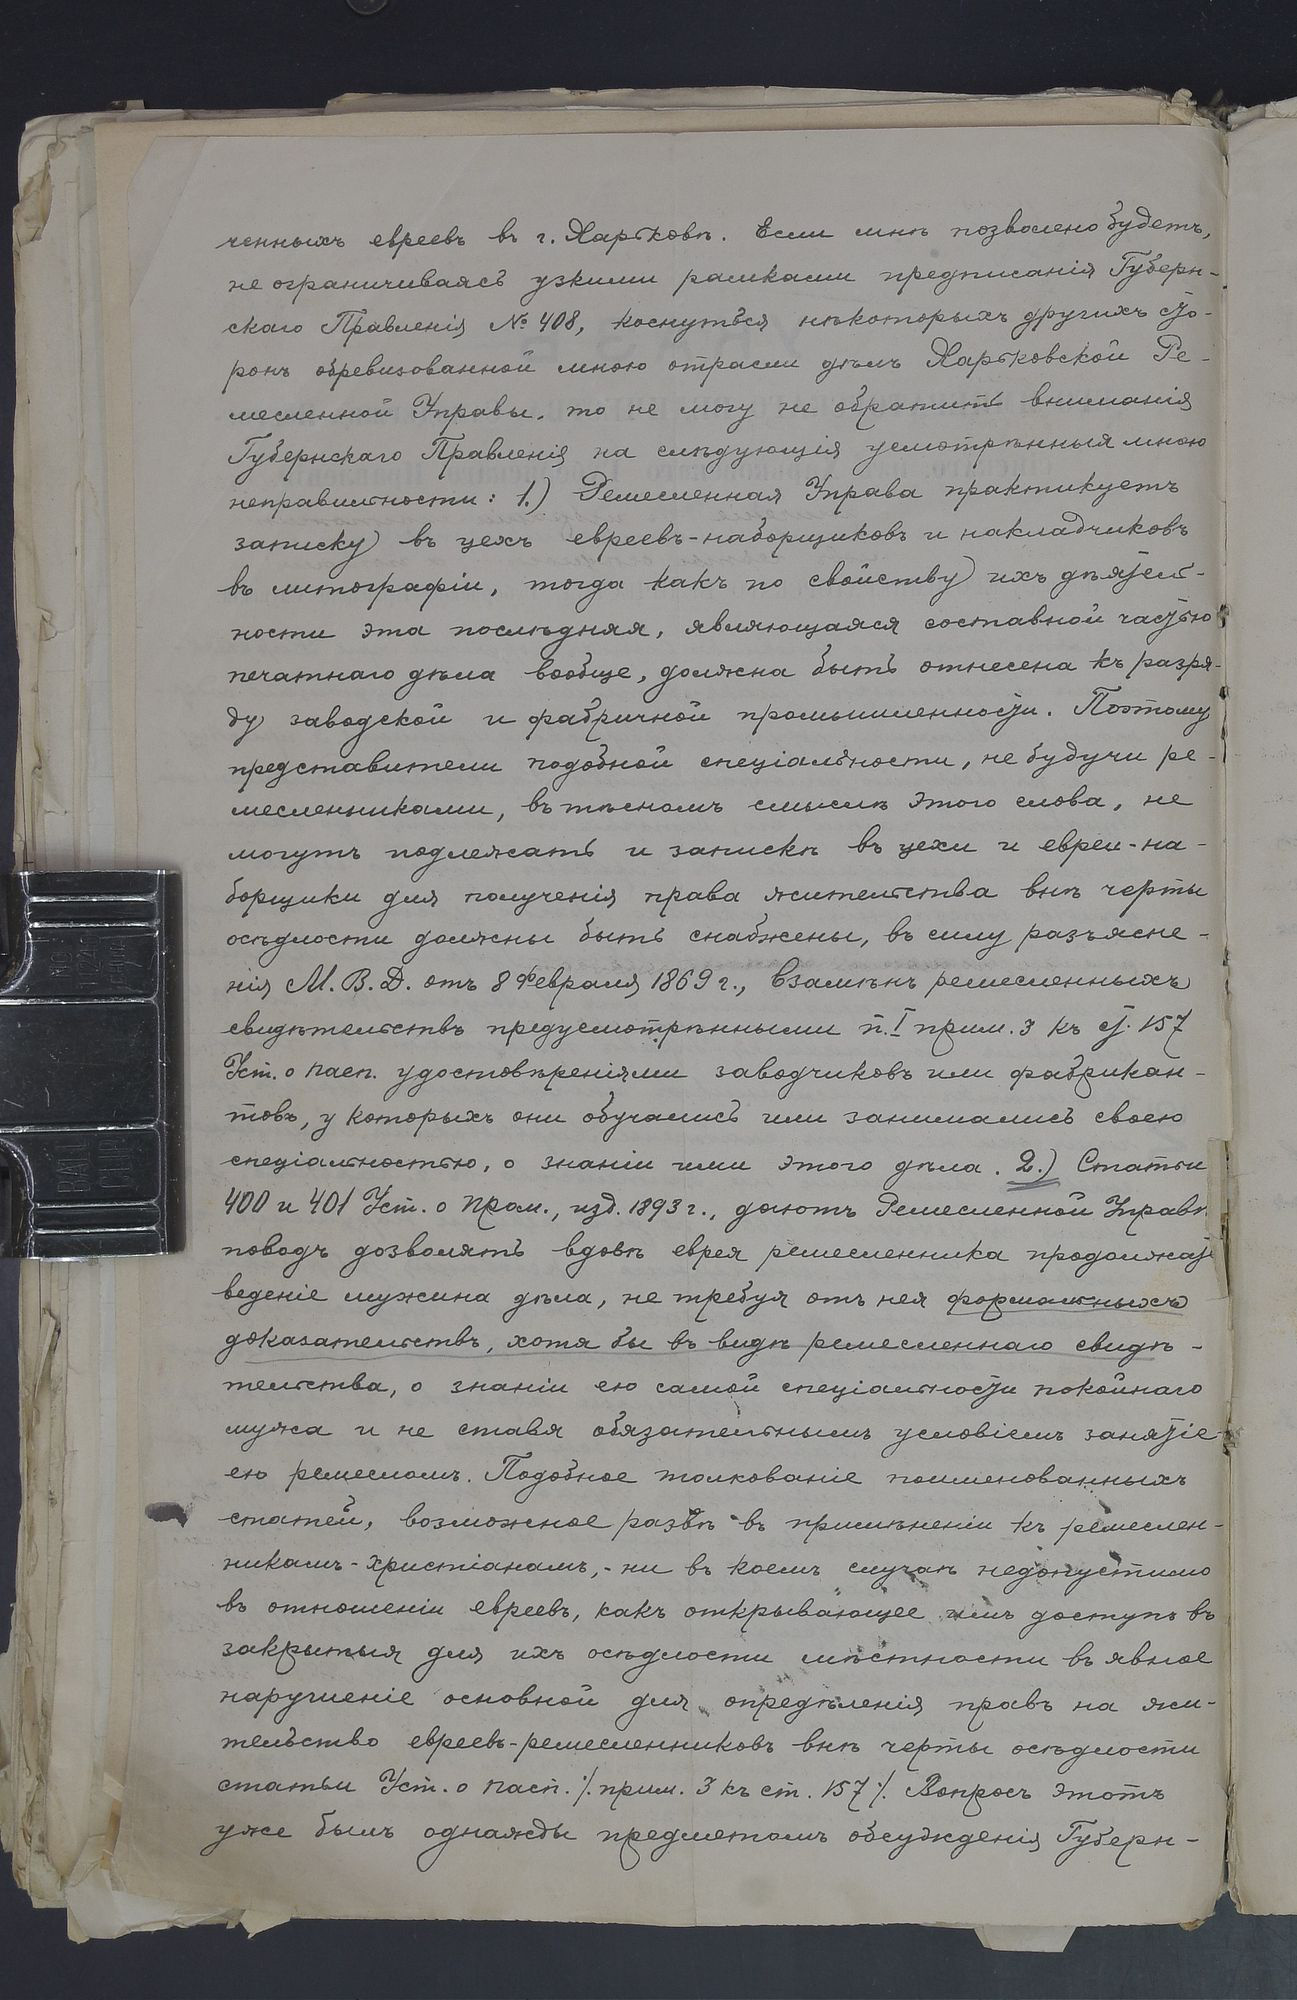 ченныхъ евреевъ въ г. Харьковѣ. Если мнѣ позволено будетъ,
не ограничиваясь узкими рамками предписанія Губерн-
скаго Правленія № 408, коснуться нѣкоторыхъ другихъ сто-
ронъ обревизованной мною отрасли дѣлъ Харьковской Ре-
месленной Управы, то не могу не обратить вниманія
Губернскаго Правленія на слѣдующія усмотрѣнныя мною
неправильности: 1.) Ремесленная Управа практикуетъ
записку въ цехъ евреевъ-наборщиковъ и накладчиковъ
въ литографіи, тогда какъ по свойству ихъ дѣятель-
ности эта послѣдняя, являющаяся составной частью
печатнаго дѣла вообще, должна быть отнесена къ разря-
ду заводской и фабричной промышленности. Поэтому
представители подобной спеціальности, не будучи ре-
месленниками, въ тѣсномъ смыслѣ этого слова, не
могутъ подлежать и запискѣ въ цехи и евреи-на-
борщики для полученія права жительства внѣ черты
осѣдлости должны быть снабжены, въ силу разъясне-
нія М. В. Д. отъ 8 Февраля 1869 г., взамѣнъ ремесленныхъ
свидѣтельствъ предусмотрѣнными п. I прим. 3 къ ст. 157
Уст. о пасп. удостовѣреніями заводчиковъ или фабрикан-
товъ, у которыхъ они обучались или занимались своею
спеціальностью, о знаніи ими этого дѣла. 2.) Статьи
400 и 401 Уст. о Пром., изд. 1893 г., даютъ Ремесленной Управѣ
поводъ дозволять вдовѣ еврея ремесленника продолжать
веденіе мужина дѣла, не требуя отъ нея формальныхъ
доказательствъ, хотя бы въ видѣ ремесленнаго свидѣ-
тельства, о знаніи ею самой спеціальности покойнаго
мужа и не ставя обязательнымъ условіемъ занятіе
ею ремесломъ. Подобное толкованіе поименованныхъ
статей, возможное развѣ въ примѣненіи къ ремеслен-
никамъ-христіанамъ,- ни въ коемъ случаѣ недопустимо
въ отношеніи евреевъ, какъ открывающее имъ доступъ въ
закрытыя для ихъ осѣдлости мѣстности въ явное
нарушеніе основной для опредѣленія правъ на жи-
тельство евреевъ-ремесленниковъ внѣ черты осѣдлости
статьи Уст. о пасп. ./. прим. 3 къ ст. 157 ./. Вопросъ этотъ
уже былъ однажды предметомъ обсужденія Губерн-